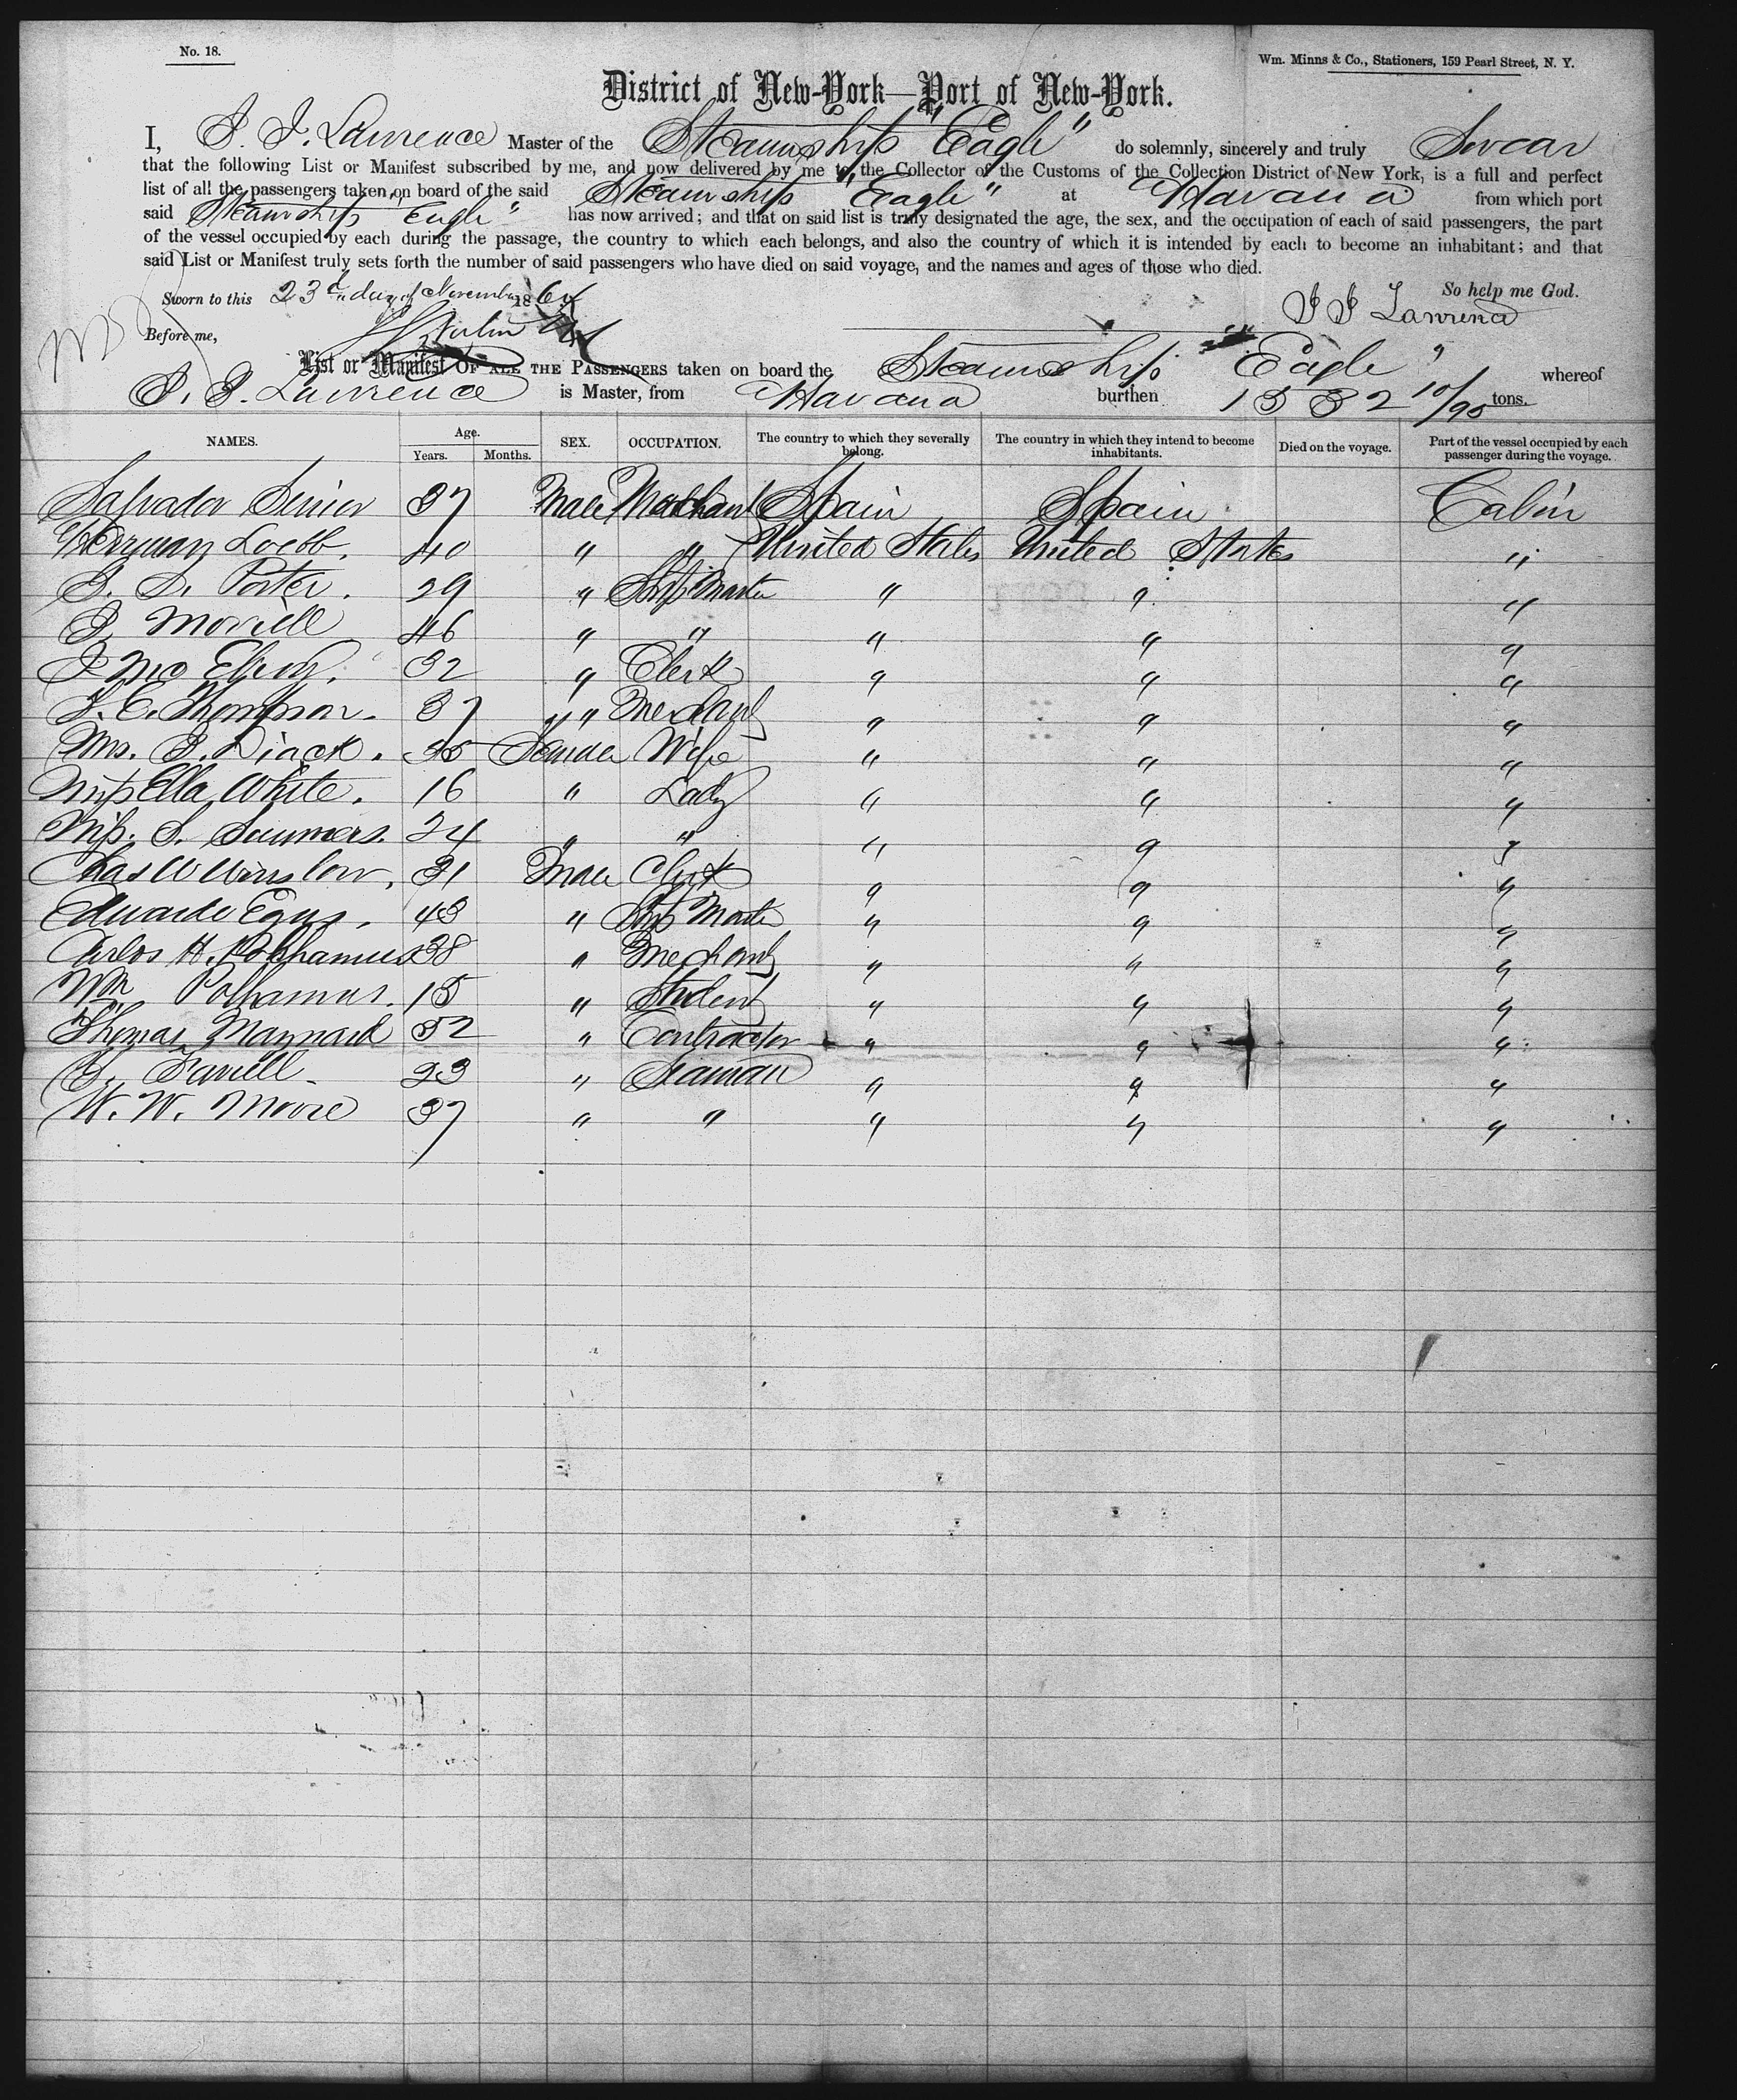 No. 18.
Wm. Minns & Co., Stationers, 159 Pearl Street, N. Y.
District of New-York—Port of New-York.
I, I. I. Lawrence Master of the Steamship "Eagle" do solemnly, sincerely and truly Swear
that the following List or Manifest subscribed by me, and now delivered by me to the Collector of the Customs of the Collection District of New York, is a full and perfect
list of all the passengers taken on board of the said Steamship "Eagle" at Havana from which port
said Steamship "Eagle" has now arrived; and that on said list is truly designated the age, the sex, and the occupation of each of said passengers, the part
of the vessel occupied by each during the passage, the country to which each belongs, and also the country of which it is intended by each to become an inhabitant; and that
said List or Manifest truly sets forth the number of said passengers who have died on said voyage, and the names and ages of those who died.
Sworn to this 23d day of November 1864 So help me God.
Before me, I I Lawrence
List or Manifest OF ALL THE PASSENGERS taken on board the Steamship "Eagle" whereof
I. I. Lawrence is Master, from Havana burthen 1332 10/95 tons.
NAMES. Age. Years. Months. SEX. OCCUPATION. The country to which they severally belong. The country in which they intend to become inhabitants. Died on the voyage. Part of the vessel occupied by each passenger during the voyage.
Salvador 37 Male Merchant Spain Spain Cabin
Herman Loebb. 40 " " United States United States "
D. Porter. 29 " Ship Master " " "
Morrell 46 " " " " "
32 " Clerk " " "
C. Thompson. 37 " Merchant " " "
Mrs. Diack. 35 Female Wife " " "
Miss Ella White. 16 " Lady " " "
Miss. S. Summers. 24 " " " " "
Chas W Winslow, 31 Male Clerk " " "
43 " Ship Master " " "
Carlos H. Polhamus 38 " Merchant " " "
Wm Polhamus. 15 " Student " " "
Thomas Maynard 52 " Contractor " " "
23 " Seaman " " "
W. W. Moore 37 " " " " "